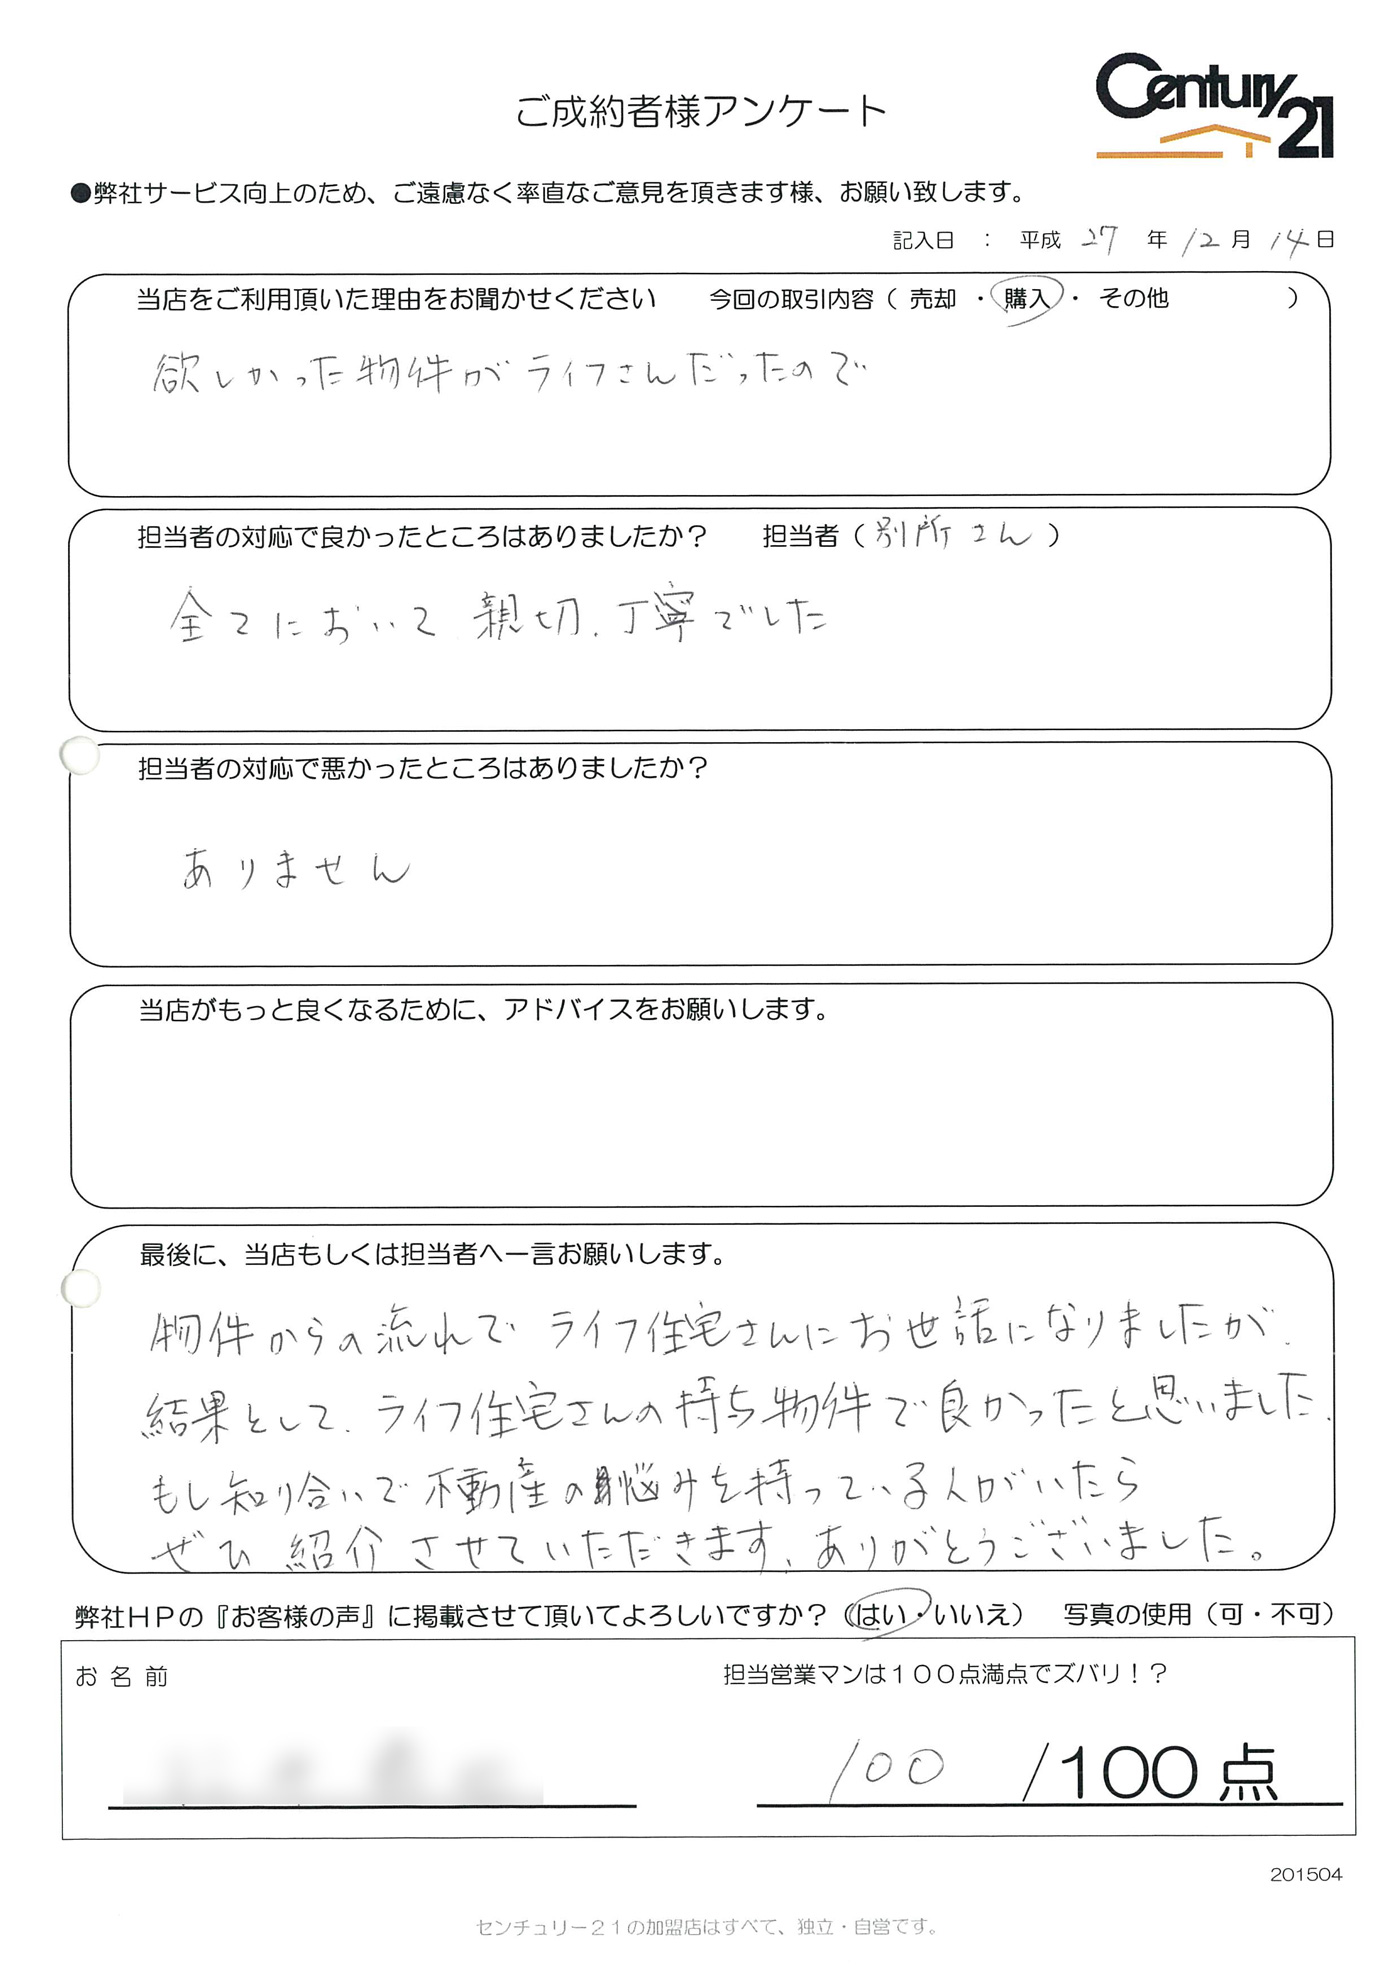 ご成約者様アンケート
Century 21
●弊社サービス向上のため、ご遠慮なく率直なご意見を頂きます様、お願い致します。
記入日 ： 平成 27 年 12 月 14 日
当店をご利用頂いた理由をお聞かせください 今回の取引内容（ 売却 ・ 購入 ・ その他 ）
欲しかった物件がライフさんだったので
担当者の対応で良かったところはありましたか？ 担当者（ 別所さん ）
全てにおいて親切、丁寧でした
担当者の対応で悪かったところはありましたか？
ありません
当店がもっと良くなるために、アドバイスをお願いします。
最後に、当店もしくは担当者へ一言お願いします。
物件からの流れでライフ住宅さんにお世話になりましたが、
結果として、ライフ住宅さんの持ち物件で良かったと思いました。
もし知り合いで不動産の悩みを持っている人がいたら
ぜひ紹介させていただきます。ありがとうございました。
弊社ＨＰの『お客様の声』に掲載させて頂いてよろしいですか？（はい・いいえ） 写真の使用（可・不可）
お 名 前 担当営業マンは１００点満点でズバリ！？
100 /100点
201504
センチュリー２１の加盟店はすべて、独立・自営です。